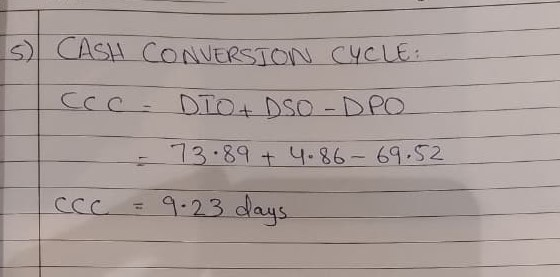 5) CASH CONVERSION CYCLE:
CCC = DIO + DSO - DPO
= 73.89 + 4.86 - 69.52
CCC = 9.23 days